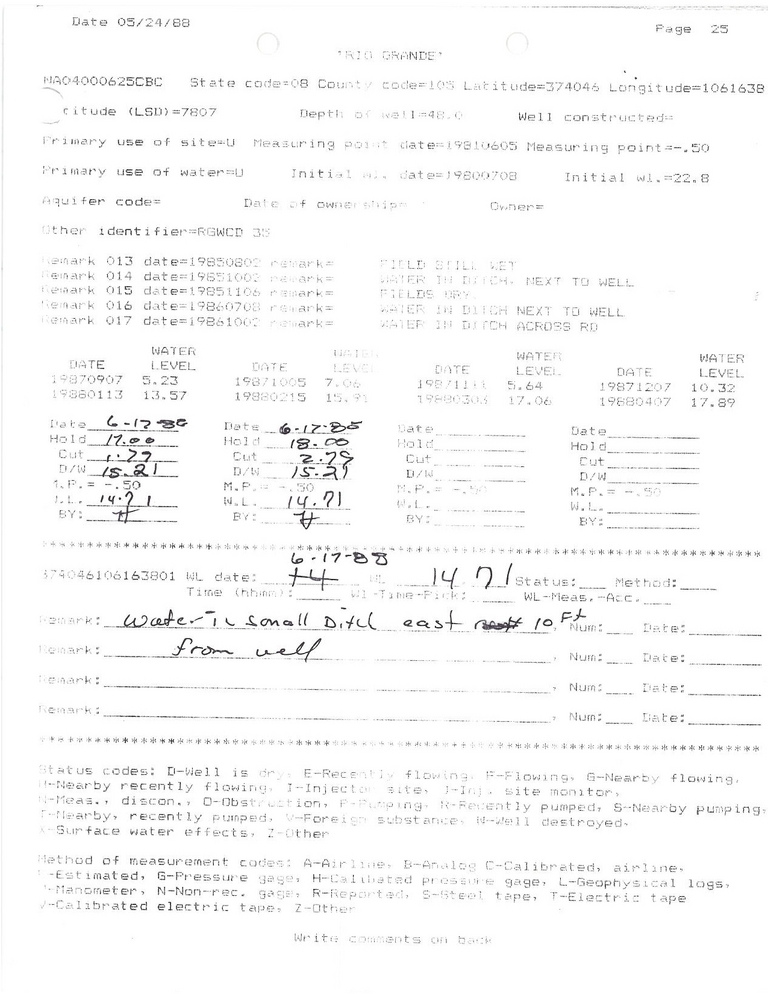 Date 05/24/88 Page 25
"RIO GRANDE"
NA04000625CBC State code=08 County code=105 Latitude=374046 Longitude=1061638
titude (LSD)=7807 Depth of well=48.0 Well constructed=
Primary use of site=U Measuring point date=19810605 Measuring point=-.50
Primary use of water=U Initial wl. date=19800708 Initial wl.=22.8
Aquifer code= Date of ownership= Owner=
Other identifier=RGWCD 35
Remark 013 date=19850802 remark= FIELD STILL WET
Remark 014 date=19851002 remark= WATER IN DITCH, NEXT TO WELL
Remark 015 date=19851106 remark= FIELDS DRY.
Remark 016 date=19860708 remark= WATER IN DITCH NEXT TO WELL
Remark 017 date=19861002 remark= WATER IN DITCH ACROSS RD
WATER WATER WATER WATER
DATE LEVEL DATE LEVEL DATE LEVEL DATE LEVEL
19870907 5.23 19871005 7.06 19871111 5.64 19871207 10.32
19880113 13.57 19880215 15.91 19880303 17.06 19880407 17.89
Date 6-17-88 Date 6-17-88 Date Date
Hold 17.00 Hold 18.00 Hold Hold
Cut 1.79 Cut 2.79 Cut Cut
D/W 15.21 D/W 15.21 D/W D/W
M.P.= -.50 M.P.= -.50 M.P.= -.50 M.P.= -.50
W.L. 14.71 W.L. 14.71 W.L. W.L.
BY: H BY: H BY: BY:
****************************************************************************
6-17-88
374046106163801 WL date: WL 14.71 Status: Method:
Time (hhmm): Wl-Time-Pick: WL-Meas.-Acc.
Remark: Water in small Ditch east 10 Ft, Num: Date:
Remark: from well, Num: Date:
Remark: , Num: Date:
Remark: , Num: Date:
****************************************************************************
Status codes: D-Well is dry, E-Recently flowing, F-Flowing, G-Nearby flowing,
H-Nearby recently flowing, I-Injector site, J-Inj. site monitor,
N-Meas., discon., O-Obstruction, P-Pumping, R-Recently pumped, S-Nearby pumping,
T-Nearby, recently pumped, V-Foreign substance, W-Well destroyed,
X-Surface water effects, Z-Other
Method of measurement codes: A-Airline, B-Analog C-Calibrated, airline,
-Estimated, G-Pressure gage, H-Calibrated pressure gage, L-Geophysical logs,
-Manometer, N-Non-rec. gage, R-Reported, S-Steel tape, T-Electric tape
V-Calibrated electric tape, Z-Other
Write comments on back